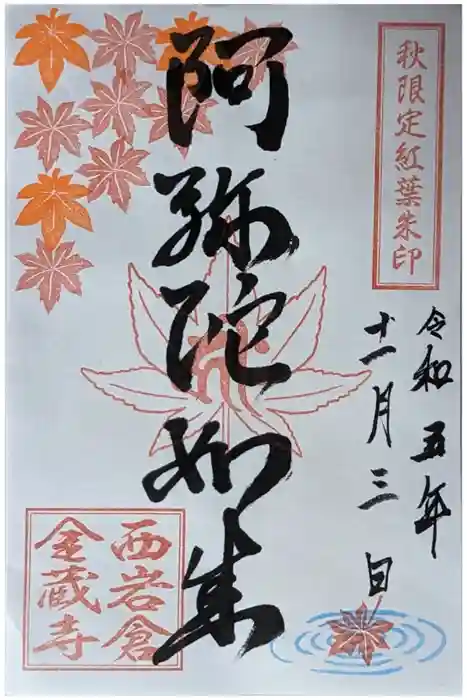 秋限定紅葉朱印
令和五年
十一月三日
阿弥陀如来
西岩倉
金蔵寺